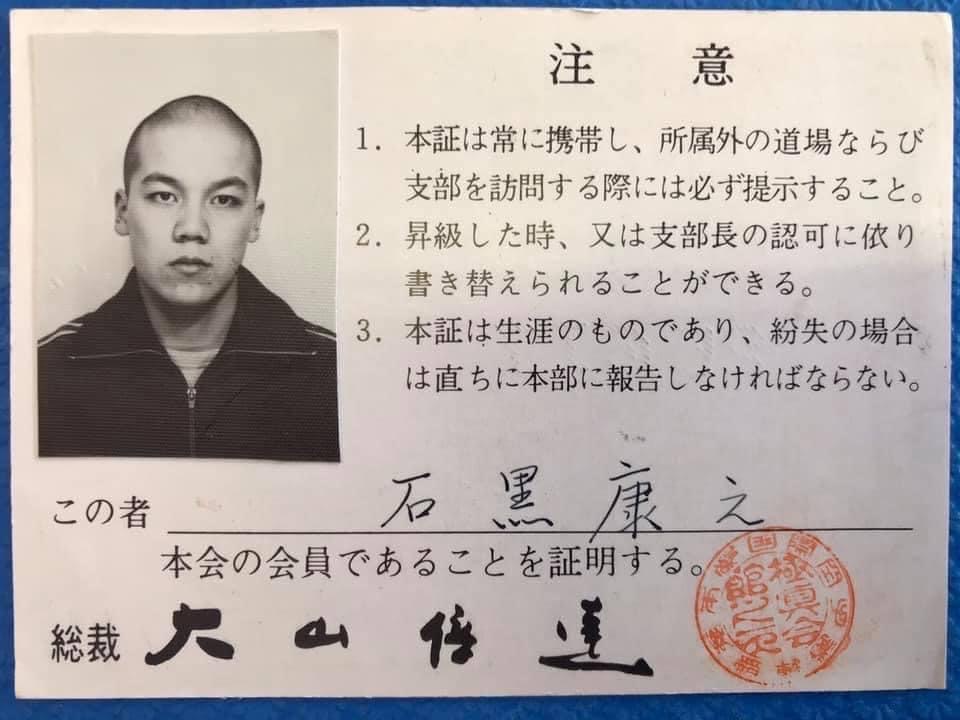 注 意
1. 本証は常に携帯し、所属外の道場ならび
支部を訪問する際には必ず提示すること。
2. 昇級した時、又は支部長の認可に依り
書き替えられることができる。
3. 本証は生涯のものであり、紛失の場合
は直ちに本部に報告しなければならない。
この者 石黒康之
本会の会員であることを証明する。
総裁 大山倍達
極真会
館之印